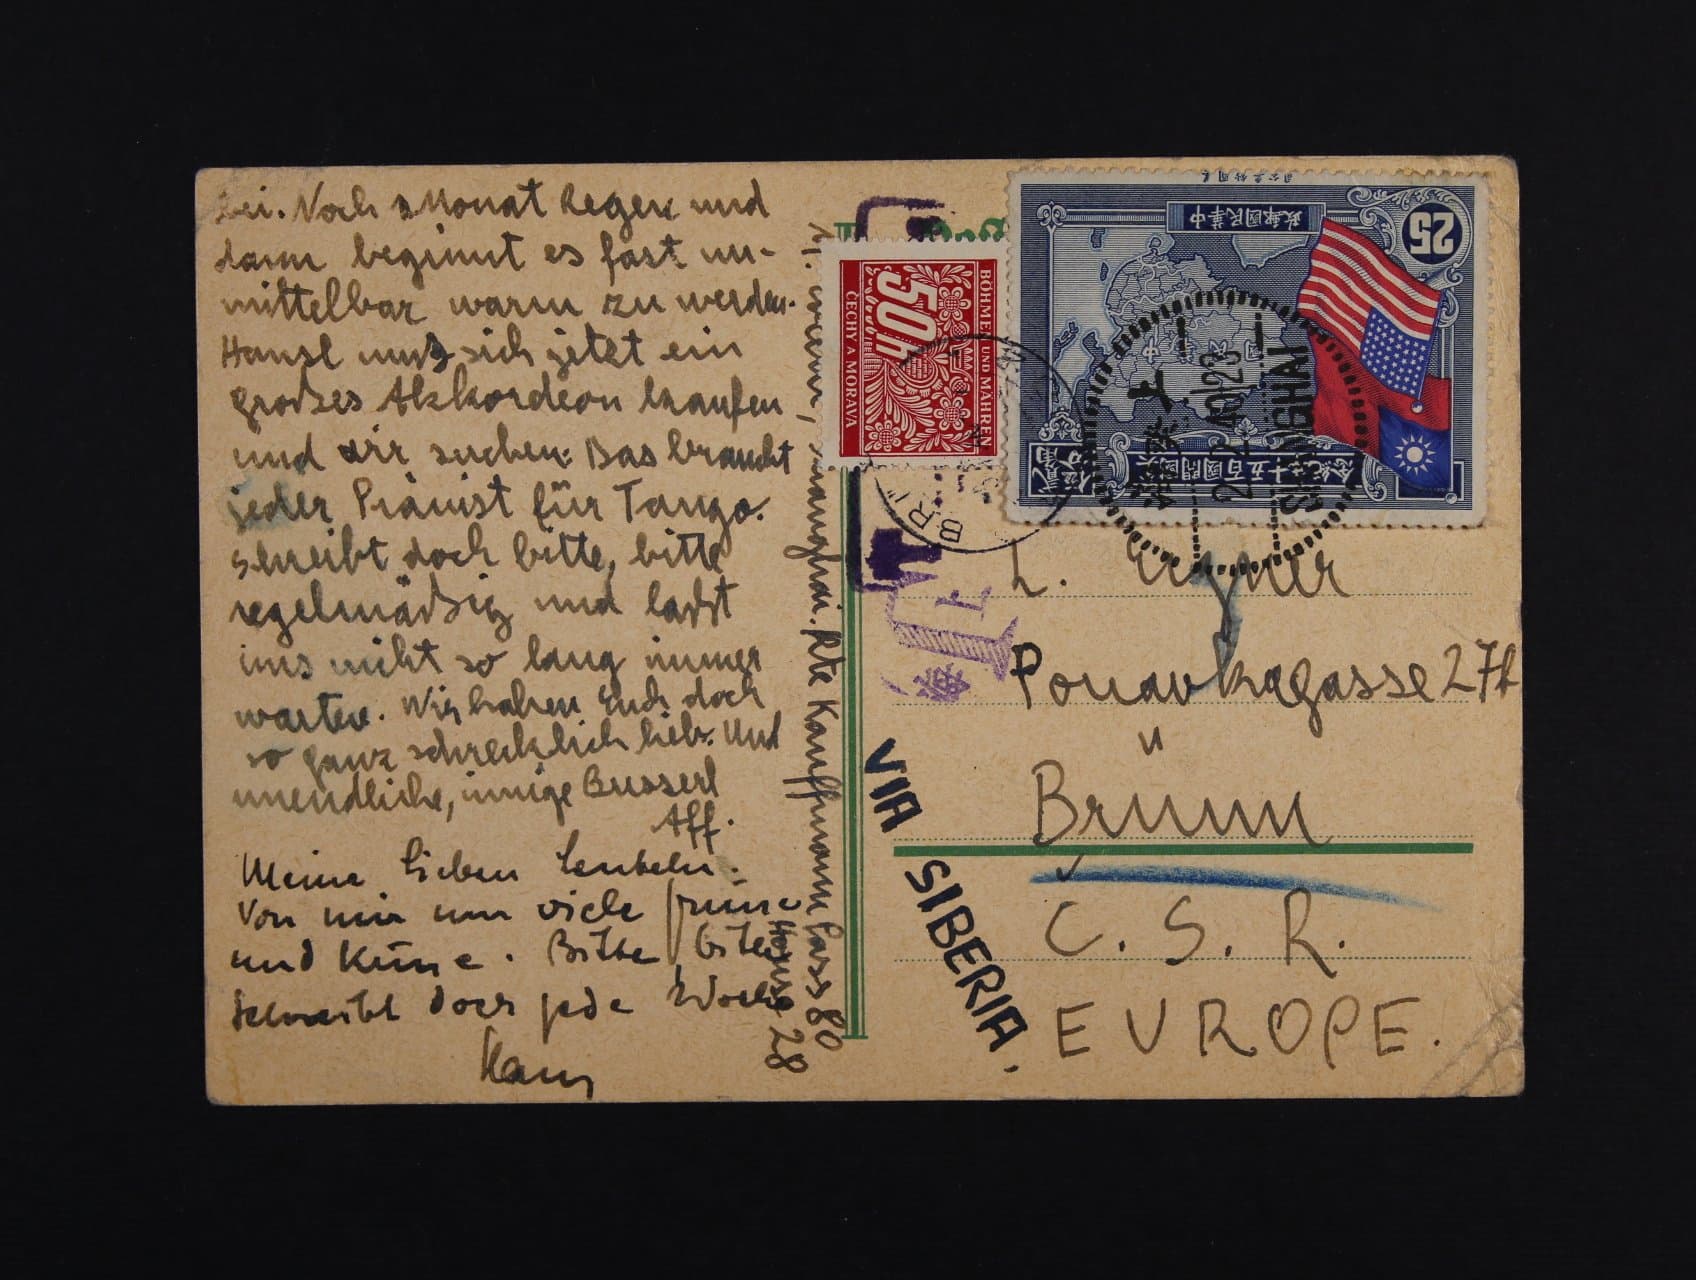 bei. Noch 2 Monat Regen und
dann beginnt es fast un-
mittelbar warm zu werden.
Hansl muß sich jetzt ein
großes Akkordeon kaufen
und wir suchen. Das braucht
jeder Pianist für Tango.
Schreibt doch bitte, bitte
regelmäßig und laßt
uns nicht so lang immer
warten. Wir haben Euch doch
so ganz schrecklich lieb. Und
unendliche, innige Busserl
Aff.
Meine lieben
Von mir nur viele
und Küsse. Bitte, bitte
schreibt doch jede Woche
Hans
Shanghai. Rte Kauffmann Pass 80
House 28
BÖHMEN UND MÄHREN
50h
ČECHY A MORAVA
BR
T
中華民國郵政
25
美國開國百五十年紀念
海上
2 12 40 23
SHANGHAI
L.
Ponavkagasse 27b
Brünn
C. S. R.
EUROPE.
VIA SIBERIA.